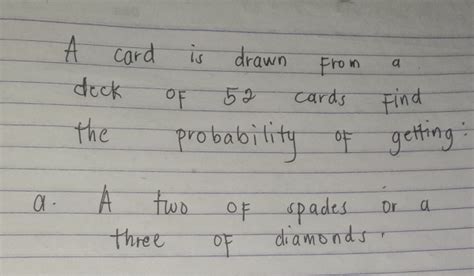 A card is drawn From a
deck of 52 cards Find
the probability of getting:
a. A two of spades or a
three of diamonds.